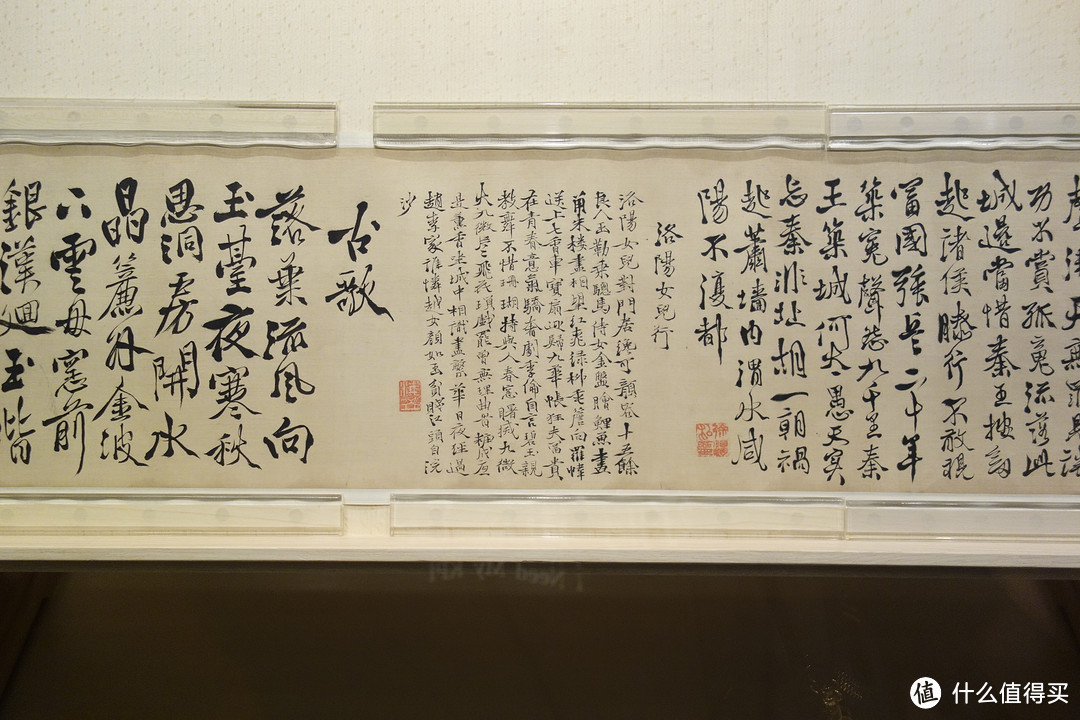 沸天無罪見誅
功不賞孤魂流落此
城邊當惜秦王按劍
起諸侯膝行不敢視
富國強兵二十年
築冤聲愁九千里秦
王築城何太愚天實
忘秦非北胡一朝禍
起蕭墻內渭水咸
陽不復都
洛陽女兒行
洛陽女兒對門居纔可顏容十五餘
良人玉勒乘驄馬侍女金盤膾鯉魚畫
閣朱樓盡相望紅桃綠柳垂簷向羅幃
送上七香車寶扇迎歸九華帳狂夫富貴
在青春意氣驕奢劇季倫自言碧玉親
教舞不惜珊瑚持與人春窓曙滅九微
火九微片片飛花璅戲罷曾無理曲時粧成秖
是熏香坐城中相識盡繁華日夜經過
趙李家誰憐越女顏如玉貧賤江頭自浣
沙
古歌
落葉流風向
玉臺夜寒秋
思洞房開水
晶簾外金波
下雲母窓前
銀漢廻玉階
值 什么值得买